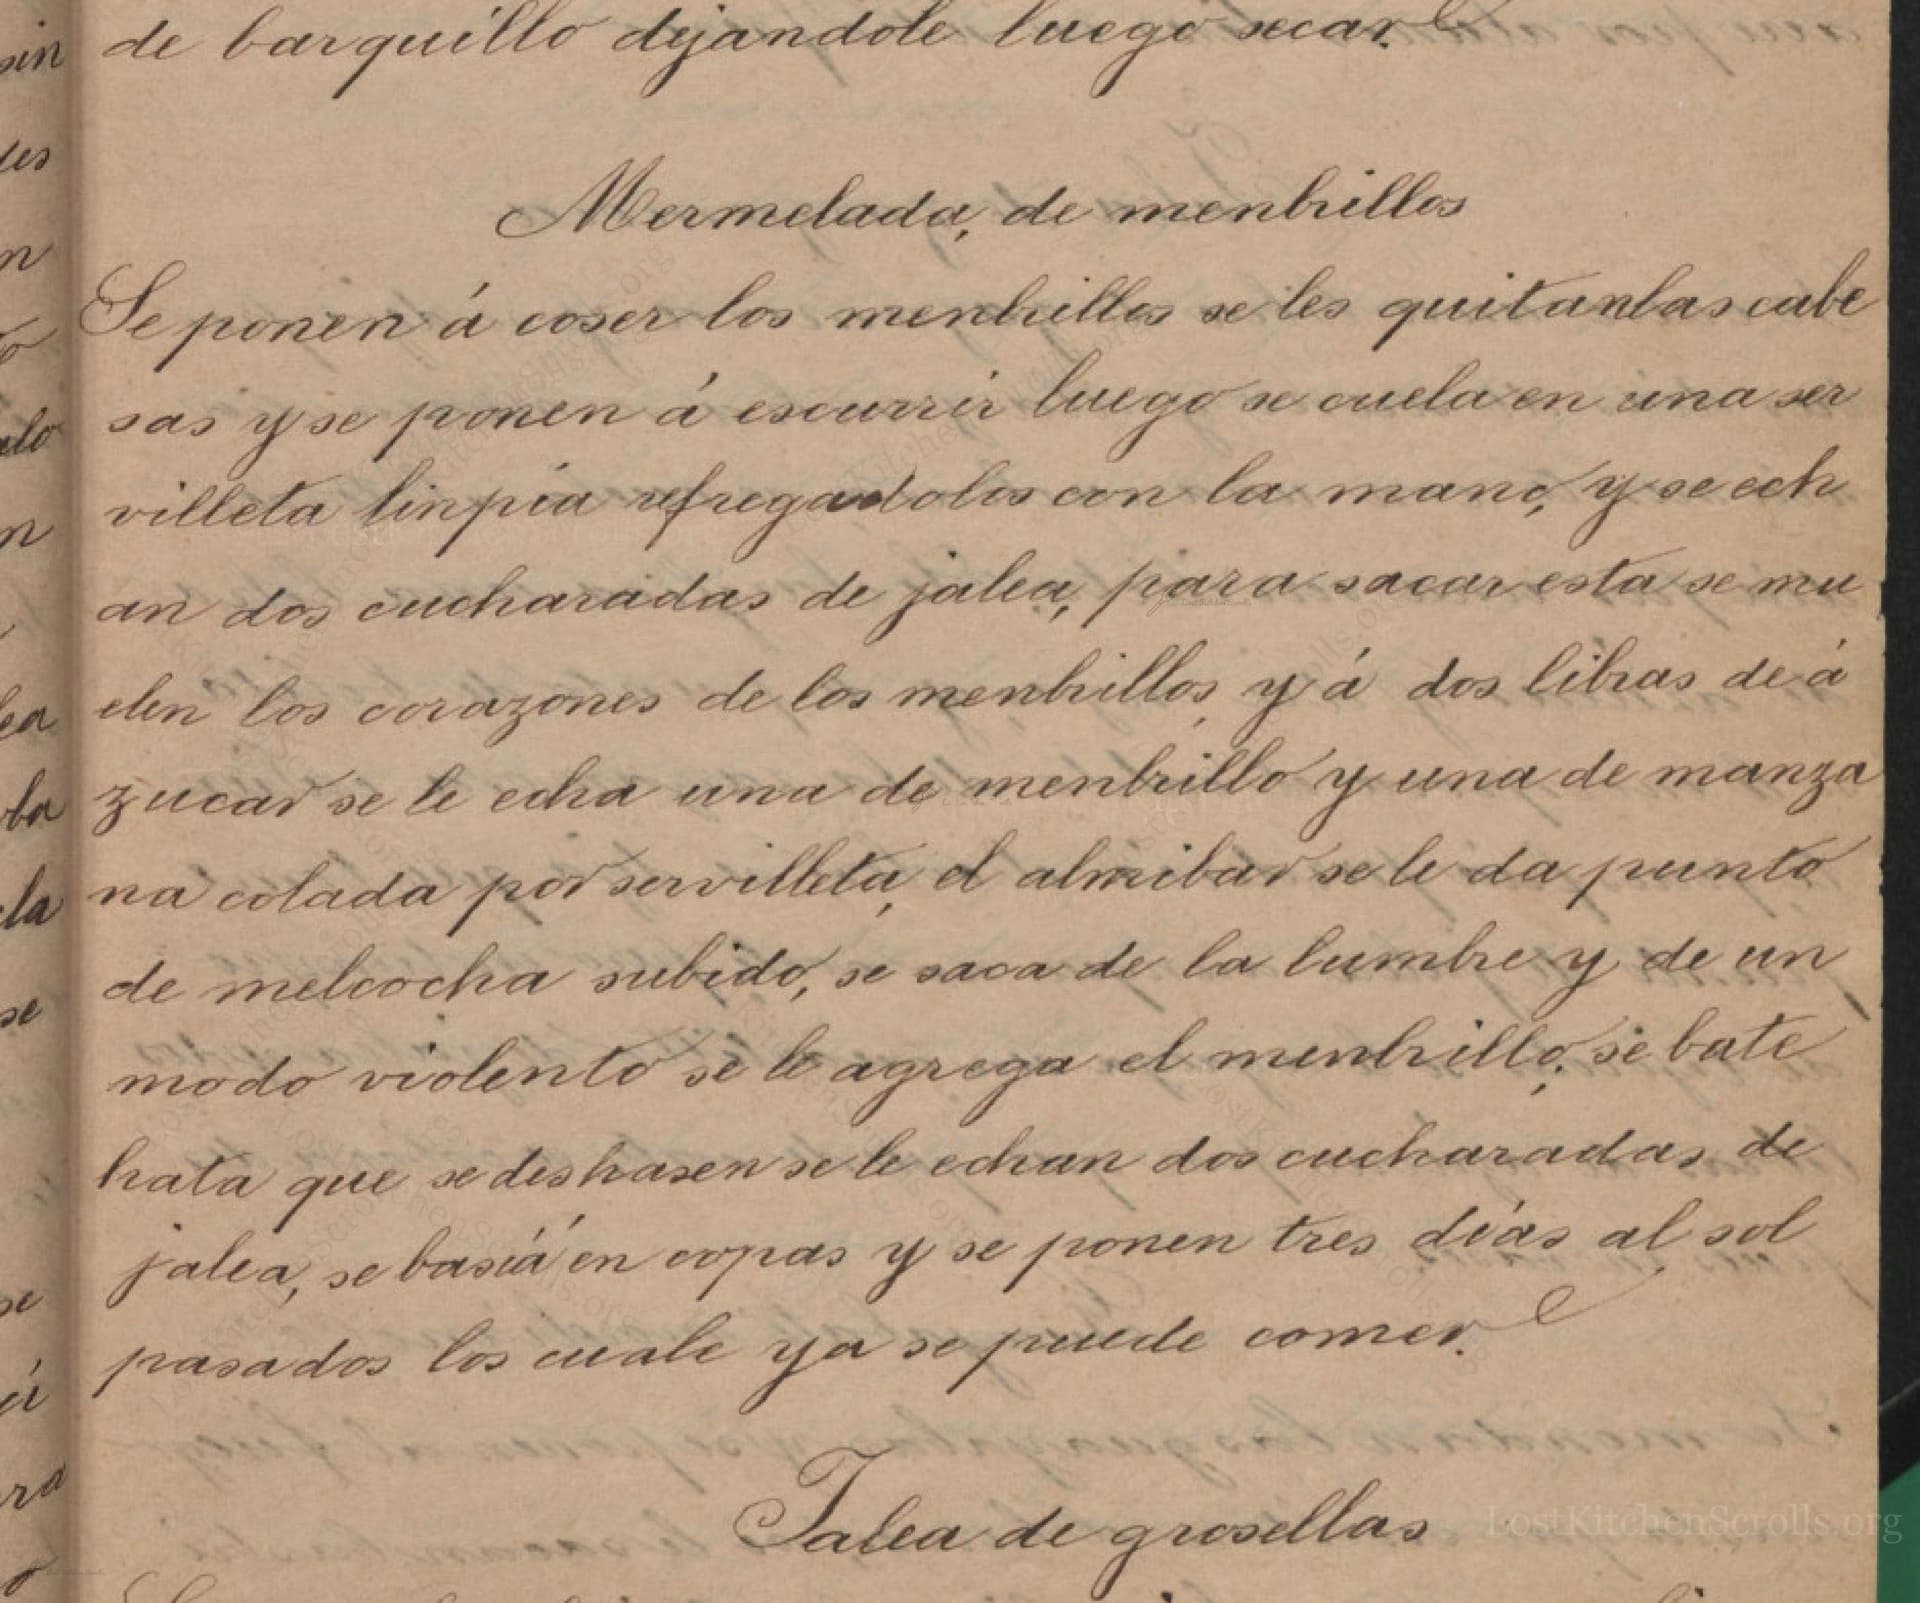 de barquillo dejandole luego secar.
Mermelada, de menbrillos
Se ponen á coser los menbrillos se les quitanlas cabe
sas y se ponen á escurrir luego se cuela en una ser
villeta linpia refregadolos con la mano, y se ech
an dos cucharadas de jalea, para sacar esta se mu
elen los corazones de los menbrillos, y á dos libras de á
zucar se le echa una de menbrillo y una de manza
na colada por servilleta, el almibar se le da punto
de melcocha subido, se saca de la lumbre y de un
modo violento se le agrega el menbrillo, se bate
hata que se deshasen se le echan dos cucharadas de
jalea, se basiá en copas y se ponen tres días al sol
pasados los cuale ya se puede comer.
Jalea de grosellas
LostKitchenScrolls.org